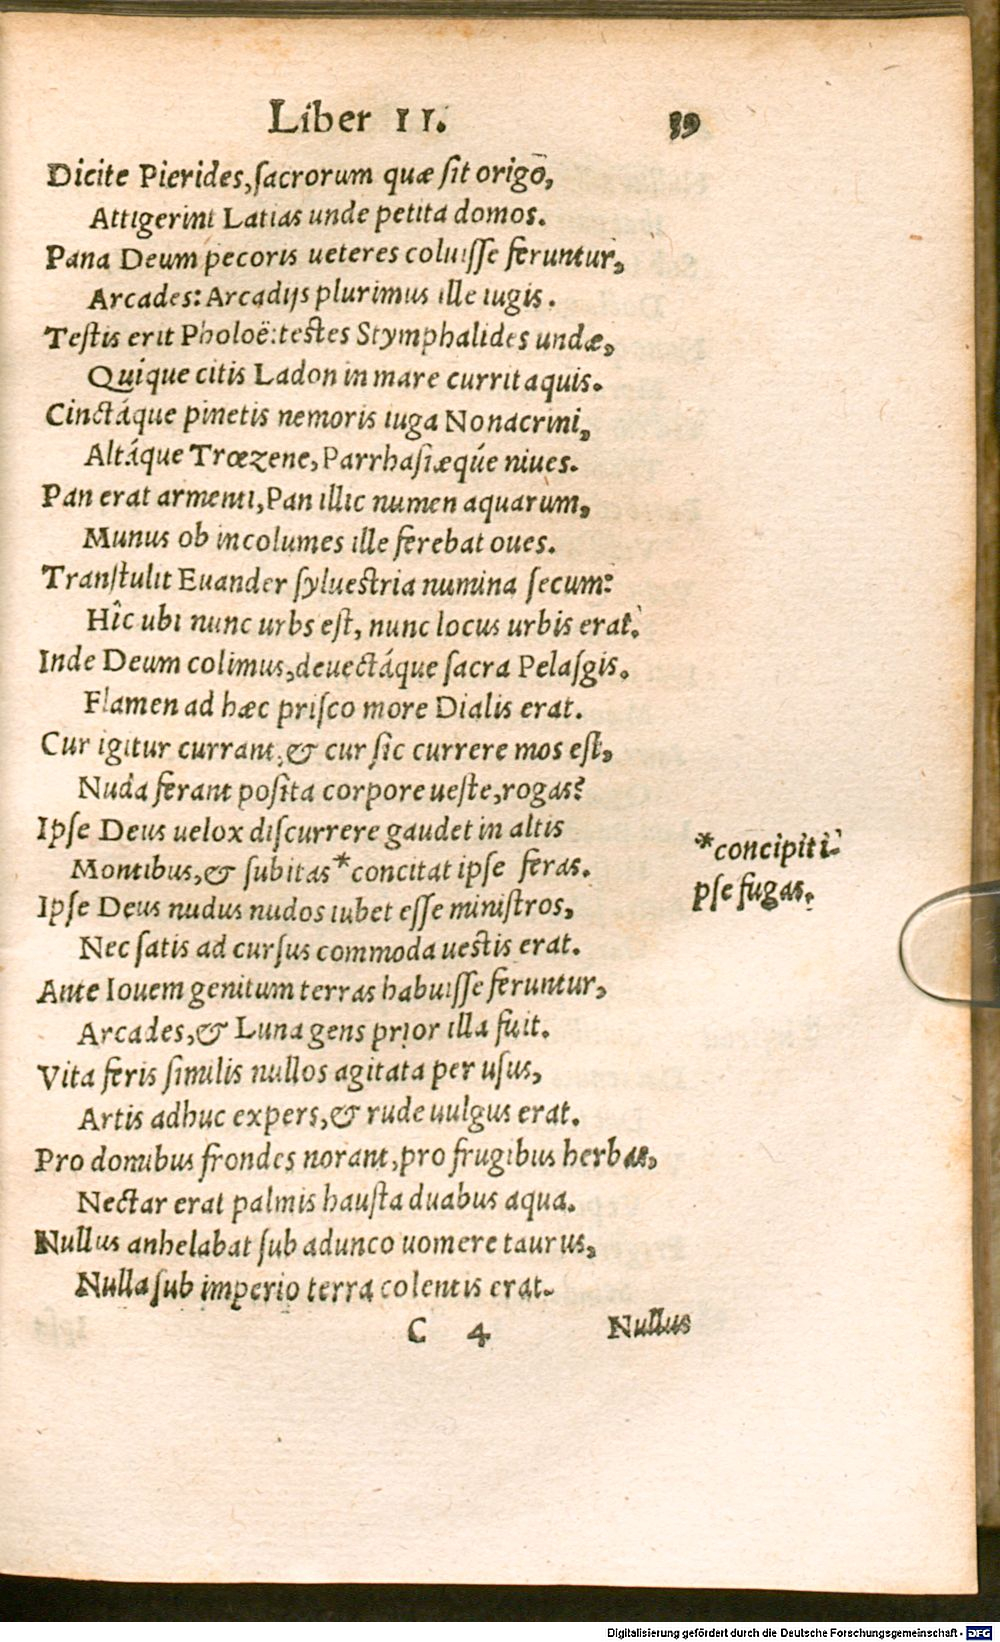 Liber II. 39
Dicite Pierides, ſacrorum quæ ſit origo,
Attigerint Latias unde petita domos.
Pana Deum pecoris ueteres coluiſſe feruntur,
Arcades: Arcadijs plurimus ille iugis.
Teſtis erit Pholoë: teſtes Stymphalides undæ,
Quíque citis Ladon in mare currit aquis.
Cinctáque pinetis nemoris iuga Nonacrini,
Altáque Trœzene, Parrhaſiæqúe niues.
Pan erat armenti, Pan illic numen aquarum,
Munus ob incolumes ille ferebat oues.
Tranſtulit Euander ſylueſtria numina ſecum:
Hîc ubi nunc urbs eſt, nunc locus urbis erat.
Inde Deum colimus, deuectáque ſacra Pelaſgis.
Flamen ad hæc priſco more Dialis erat.
Cur igitur currant, & cur ſic currere mos eſt,
Nuda ferant poſita corpore ueſte, rogas?
Ipſe Deus uelox diſcurrere gaudet in altis
Montibus, & ſubitas *concitat ipſe feras.
*concipit i-
pſe fugas.
Ipſe Deus nudus nudos iubet eſſe miniſtros,
Nec ſatis ad curſus commoda ueſtis erat.
Ante Iouem genitum terras habuiſſe feruntur,
Arcades, & Luna gens prior illa fuit.
Vita feris ſimilis nullos agitata per uſus,
Artis adhuc expers, & rude uulgus erat.
Pro domibus frondes norant, pro frugibus herbas,
Nectar erat palmis hauſta duabus aqua.
Nullus anhelabat ſub adunco uomere taurus,
Nulla ſub imperio terra colentis erat.
C 4 Nullus
Digitalisierung gefördert durch die Deutsche Forschungsgemeinschaft - DFG